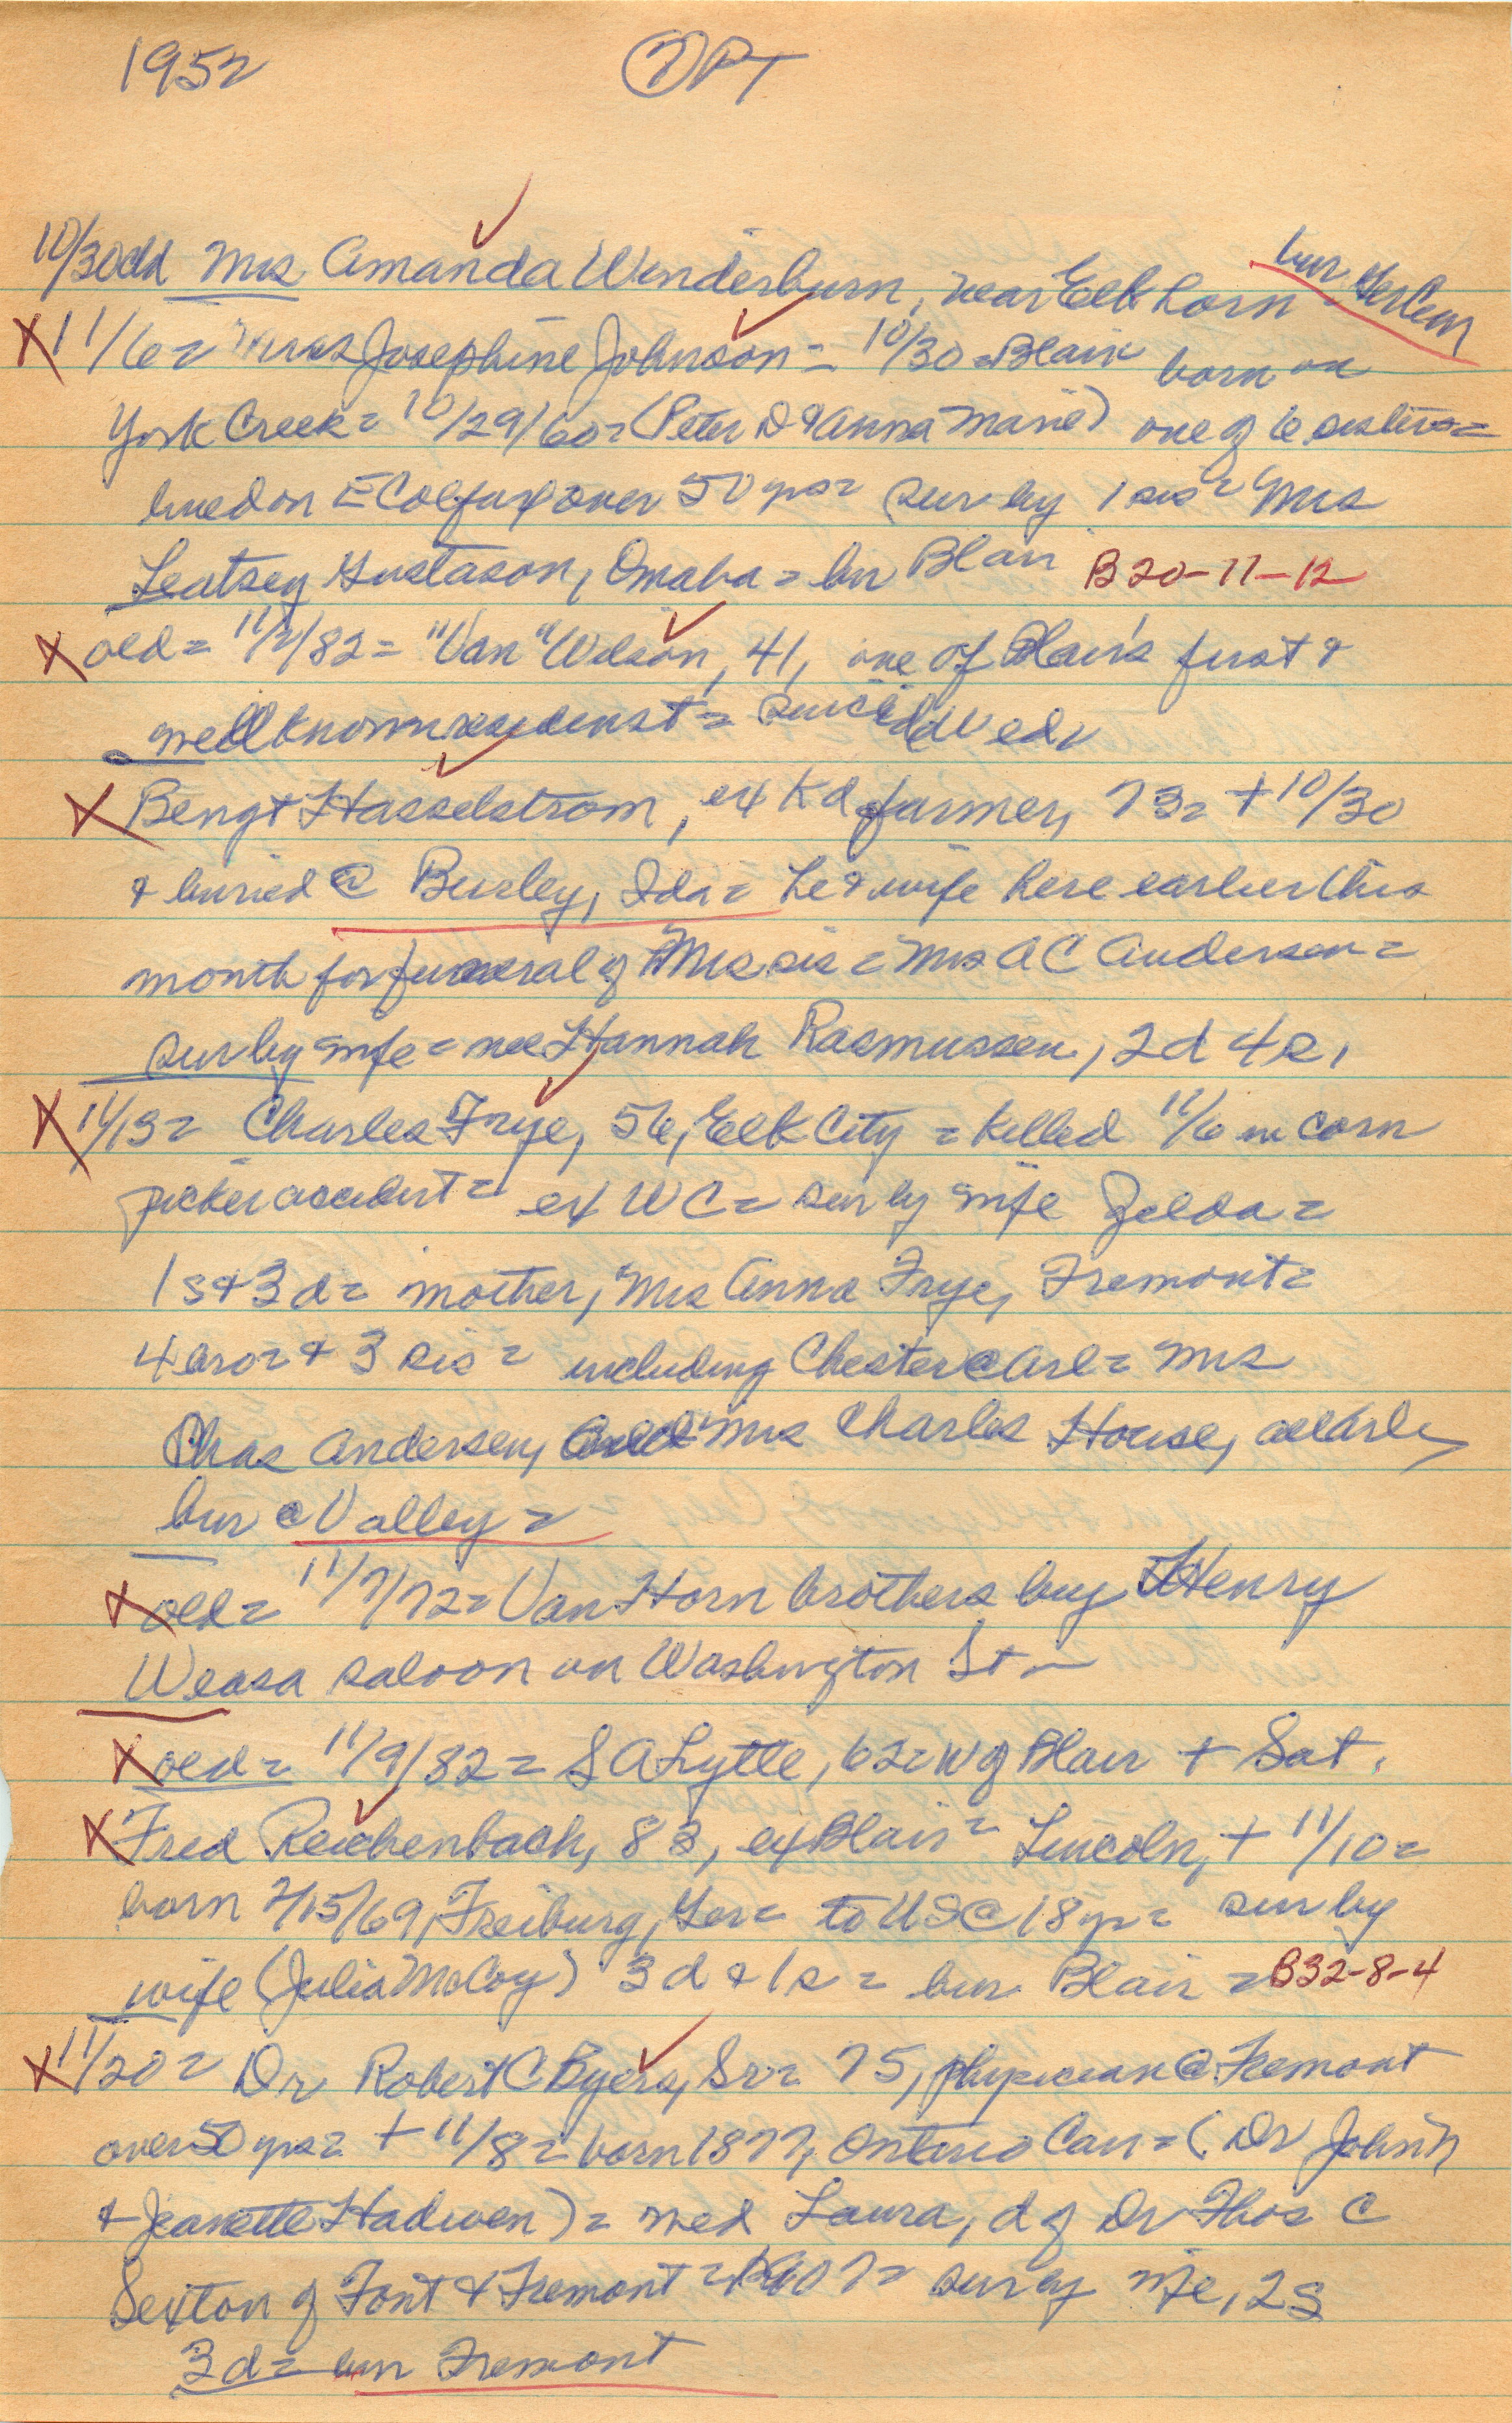 1952 (7) PT
10/30 old Mrs Amanda Wenderburn, near Elkhorn = bur Ger Cem
X 11/6 = Mrs Josephine Johnson = 10/30 = Blair born on
York Creek = 10/29/60 = (Peter D & Anna Marie) one of 6 sisters =
lived on E Colfax over 50 yrs = sur by 1 sis = Mrs
Leatsey Gustason, Omaha = bur Blair B20-11-12
X old = 11/2/82 = "Van" Wilson, 41, one of Blair's first &
well known = Wed
X Bengt Hasselstrom, ex Kd farmer, 73 = + 10/30
& buried @ Burley, Ida = he & wife here earlier this
month for funeral of Mrs sis = Mrs A C Andersen =
sur by wife = nee Hannah Rasmussen, 2d 4s,
X 11/13 = Charles Frye, 56, Elk City = killed 11/6 in corn
picker accident = ex WC = sur by wife Zelda =
1s & 3d = mother, Mrs Anna Frye, Fremont =
4 bro = & 3 sis = including Chester @ Arl = Mrs
Chas Andersen, Mrs Charles House, all Arl,
bur @ Valley =
X old = 11/7/72 = Van Horn brothers buy Henry
Weasa saloon on Washington St -
X old = 11/9/82 = S A Lytle, 62 = W of Blair + Sat.
X Fred Reichenbach, 83, ex Blair = Lincoln, + 11/10 =
born 7/15/69, Freiburg, Ger = to US @ 18 yr = sur by
wife (Julia McCoy) 3d & 1s = bur Blair = B32-8-4
X 11/20 = Dr Robert C Byers, Sr = 75, physician @ Fremont
over 50 yrs = + 11/8 = born 1877, Ontario Can = (Dr John N
& Jeanette Hadwen) = med Laura, d of Dr Thos C
Sexton of Font & Fremont = 1907 = sur by wife, 2s
3d = bur Fremont